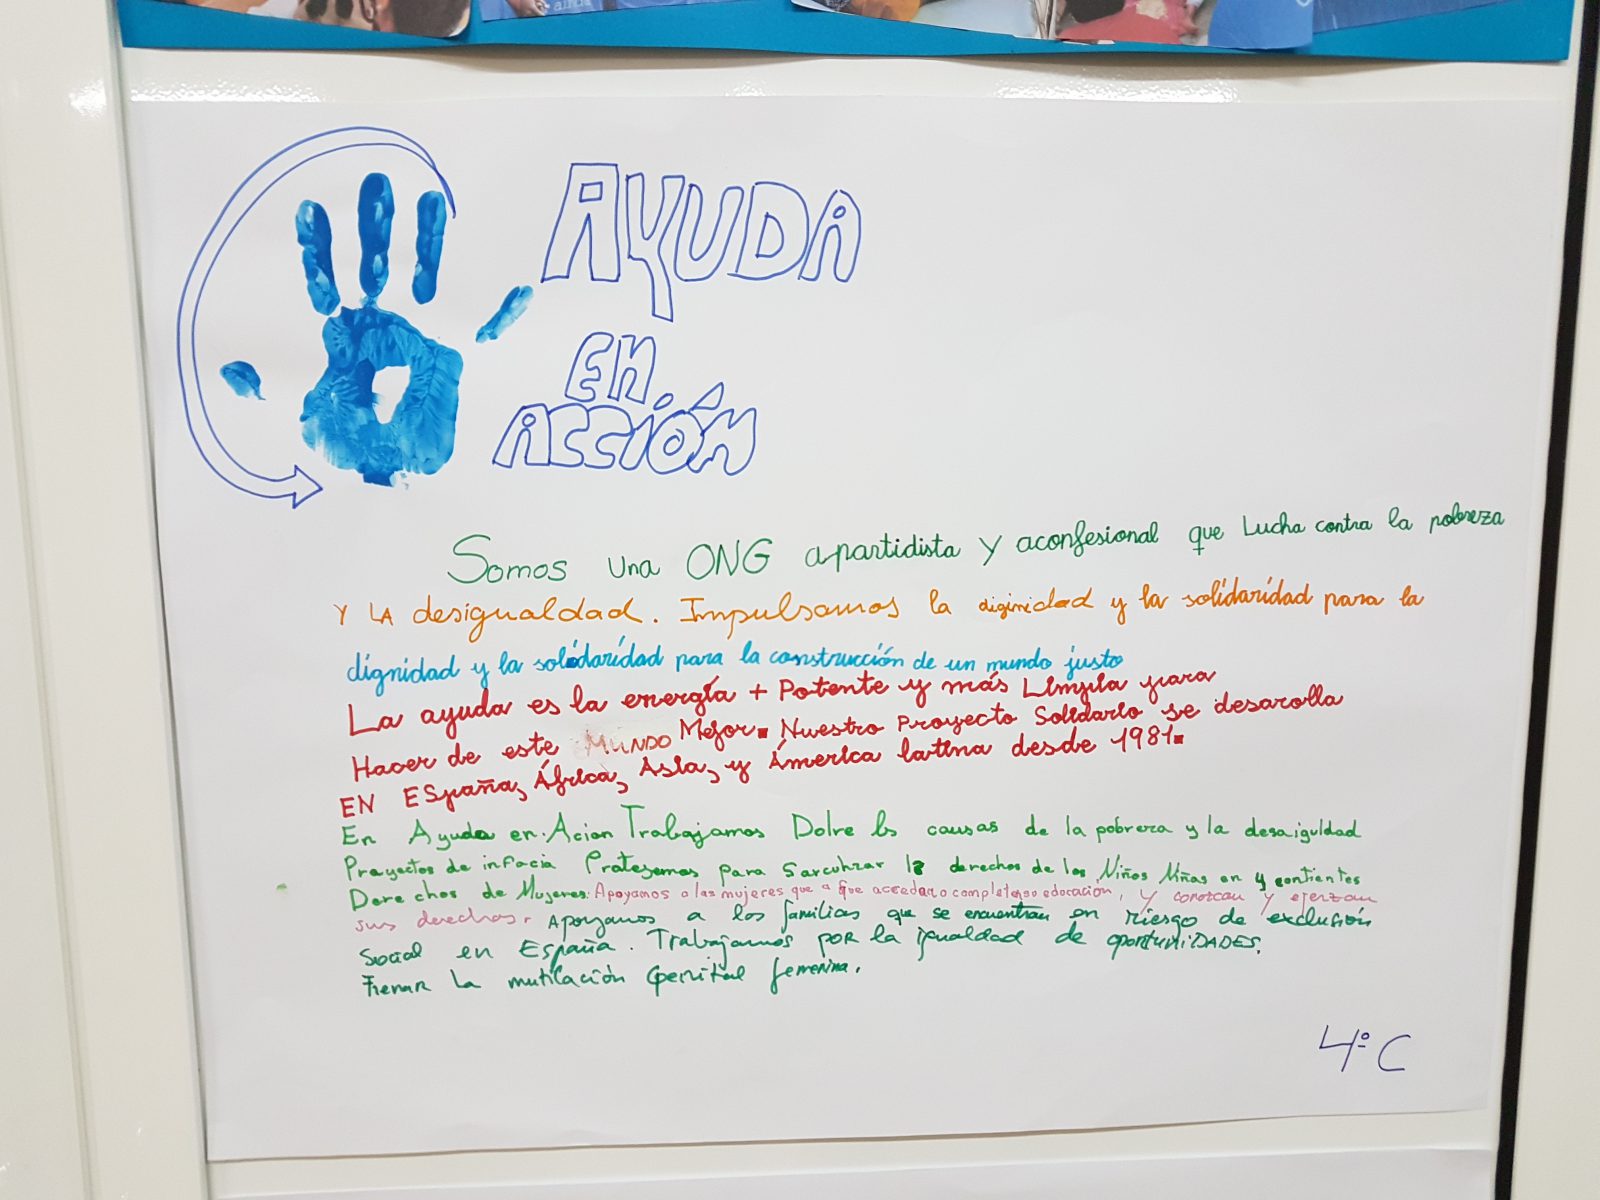 AYUDA
EN
ACCIÓN
Somos una ONG apartidista y aconfesional que Lucha contra la pobreza
Y LA desigualdad. Impulsamos la diginidad y la solidaridad para la
dignidad y la solidaridad para la construcción de un mundo justo
La ayuda es la energía + Potente y más Limpia para
Hacer de este MUNDO Mejor. Nuestro Proyecto Solidario se desarolla
EN España, África, Asia, y América latina desde 1981.
En Ayuda en Acion Trabajamos Dolre ls causas de la pobreza y la desaiguldad
Proyectos de infacia Protegemos para los derechos de los Niños Niñas en y contientes
Derechos de Mujeres: Apoyamos a las mujeres que a que educación, y conozcan y ejerzan
sus derechos. Apoyamos a los familias que se encuentran en riesgo de exclusión
Social en España. Trabajamos por la igualdad de oportuniDADES.
Frenar la mutilación Genital femenina.
4º C